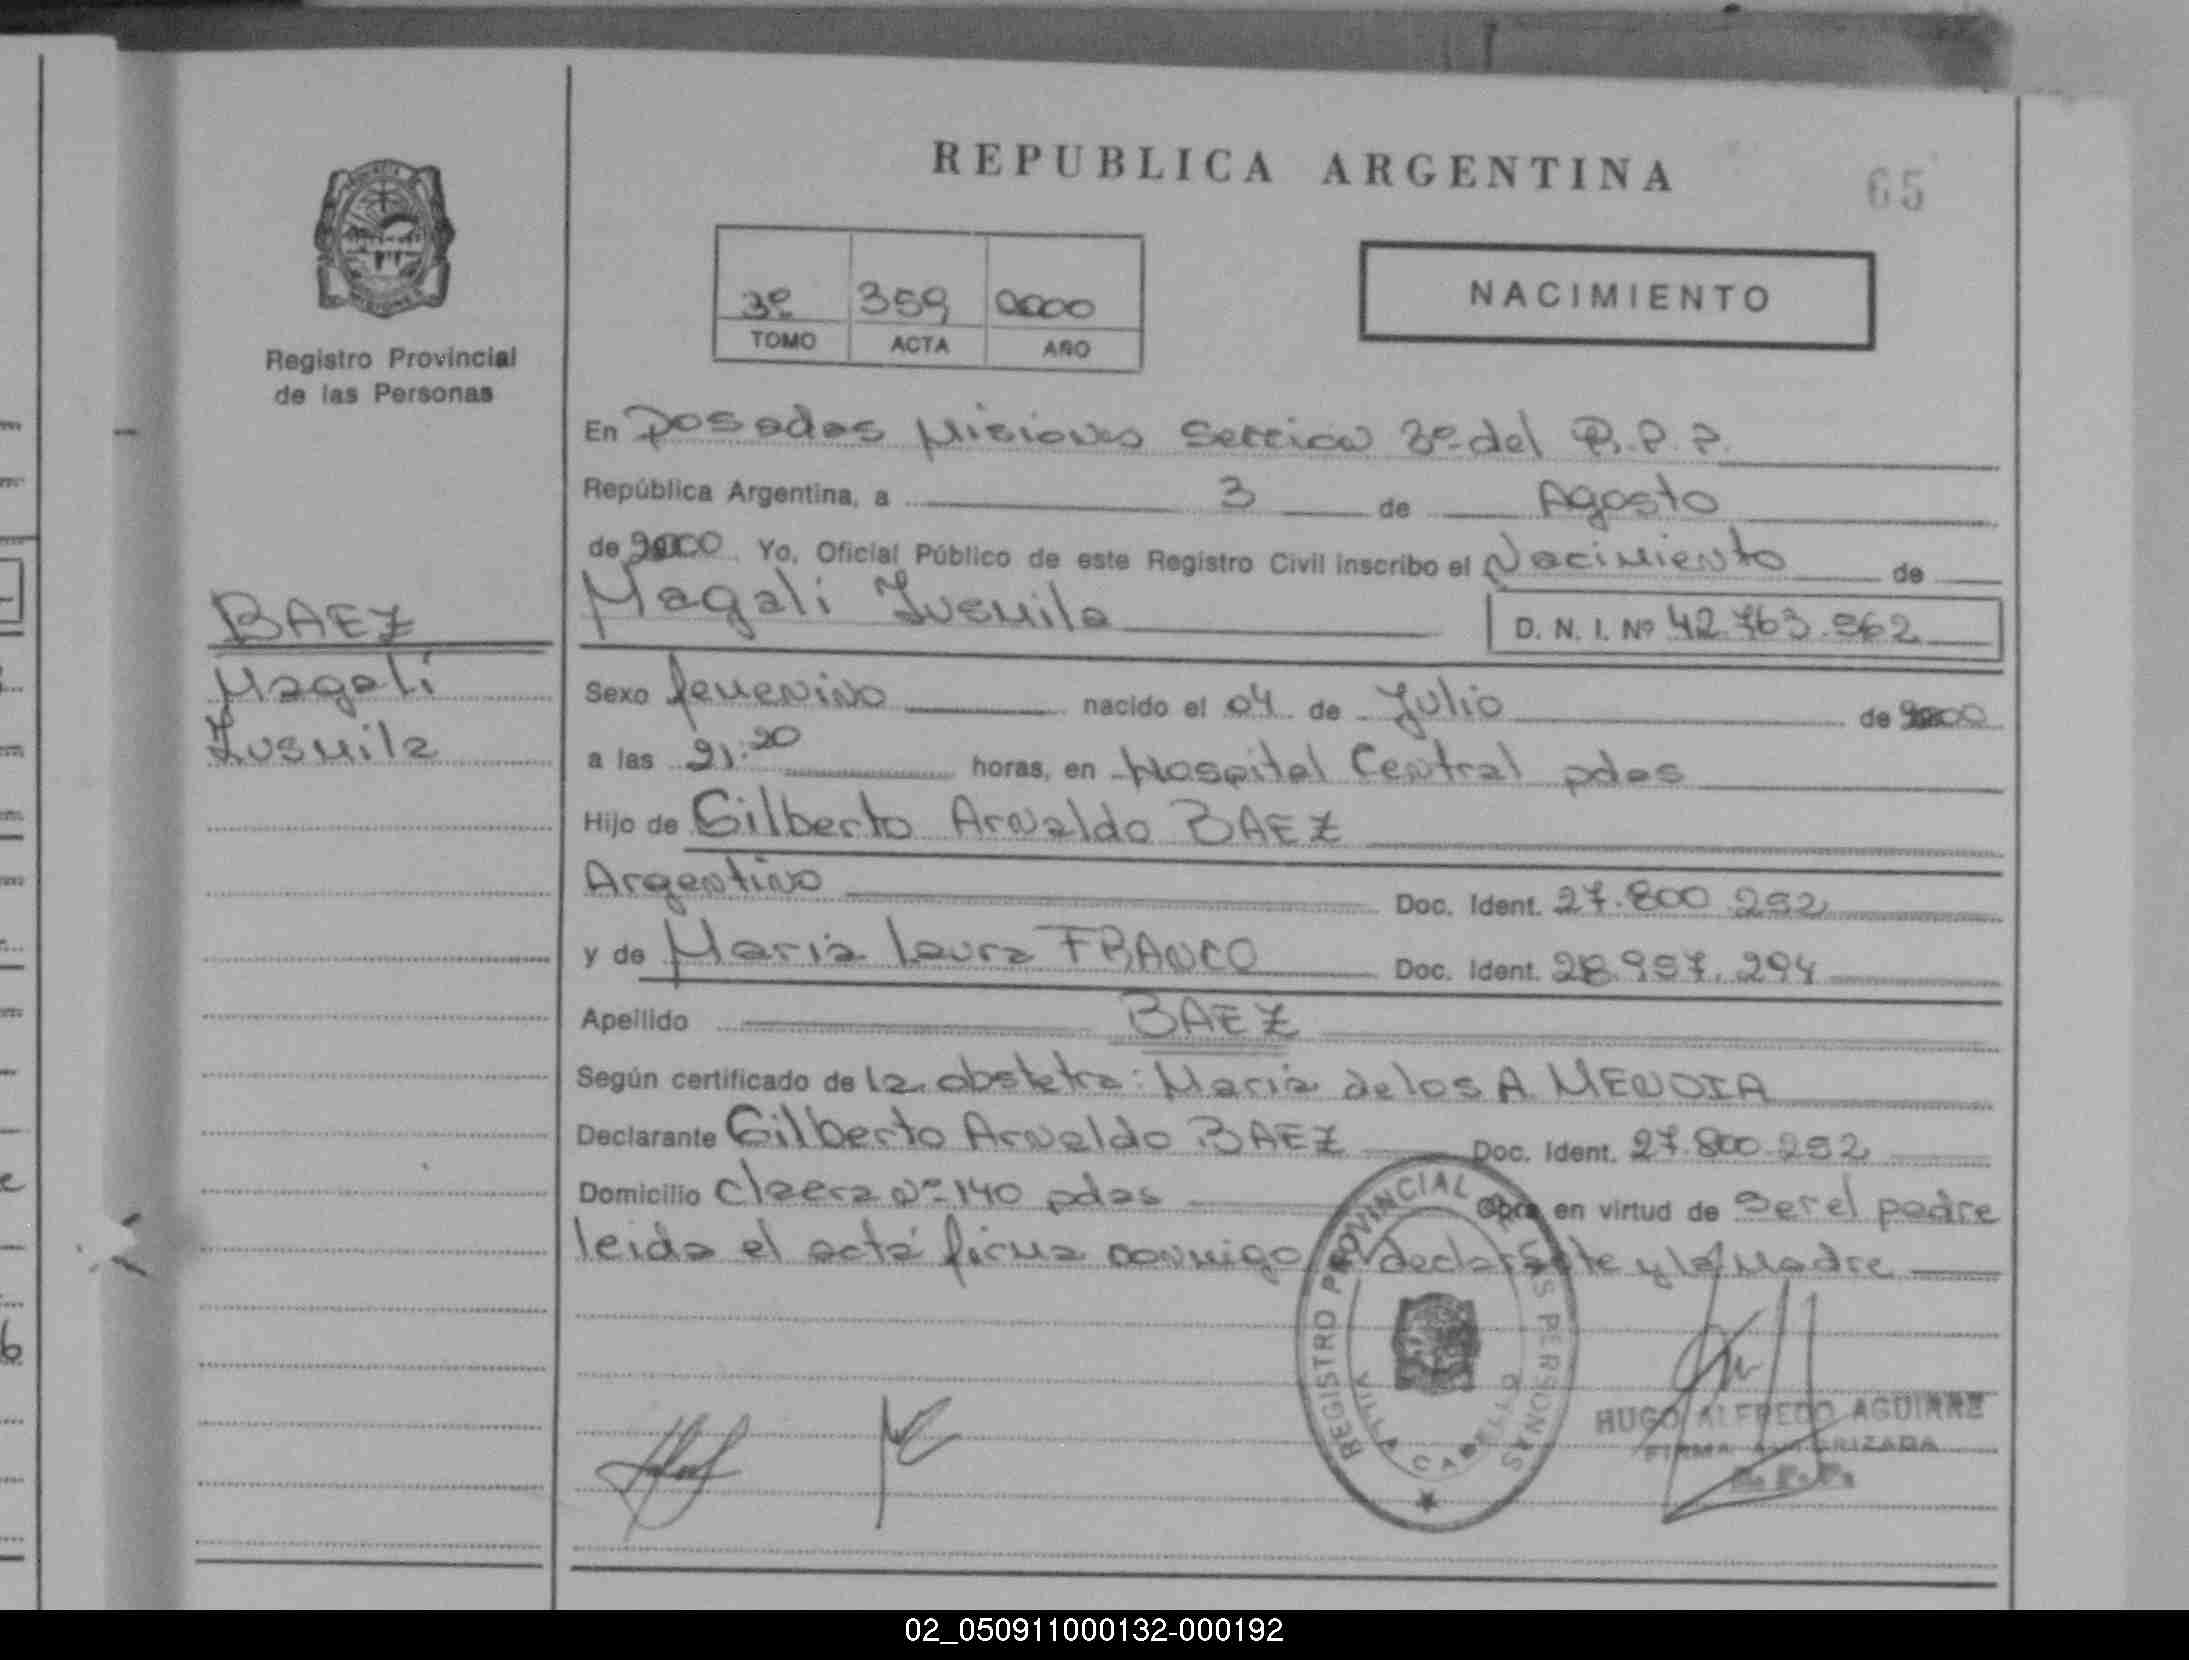 REPUBLICA ARGENTINA
65
3º 359 2000
TOMO ACTA AÑO
NACIMIENTO
Registro Provincial
de las Personas
En Posadas Misiones Seccion 3º del R.P.P.
República Argentina, a 3 de Agosto
de 2000 Yo, Oficial Público de este Registro Civil inscribo el Nacimiento de
Magali Yusmila
D. N. I. Nº 42.763.962
BAEZ
Magali
Yusmila
Sexo femenino nacido el 04 de Julio de 2000
a las 21:20 horas, en Hospital Central pdas
Hijo de Gilberto Arnaldo BAEZ
Argentino Doc. Ident. 27.800.292
y de Maria Laura FRANCO Doc. Ident. 28.957.294
Apellido BAEZ
Según certificado de la obstetra: Maria de los A. MENDIA
Declarante Gilberto Arnaldo BAEZ Doc. Ident. 27.800.292
Domicilio Nº 140 pdas Obra en virtud de ser el padre
leida el acta firma conmigo declarante y la Madre
REGISTRO PROVINCIAL PERSONAS
VILLA CABELLO
HUGO ALFREDO AGUIRRE
FIRMA AUTORIZADA
R.P.P.
02_050911000132-000192